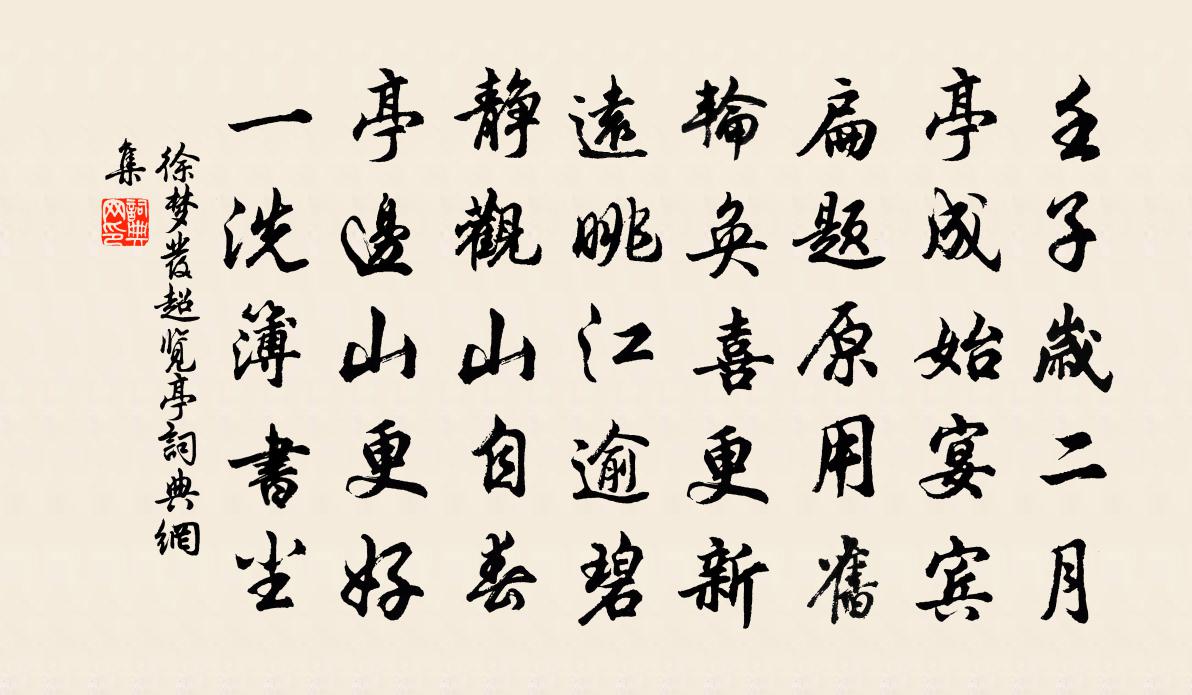 壬子歲二月
亭成始宴宾
扁题原用舊
輪奐喜更新
遠眺江逾碧
静觀山自春
亭邊山更好
一洗簿書尘
徐梦發超览亭詞典網
集
詞典网印